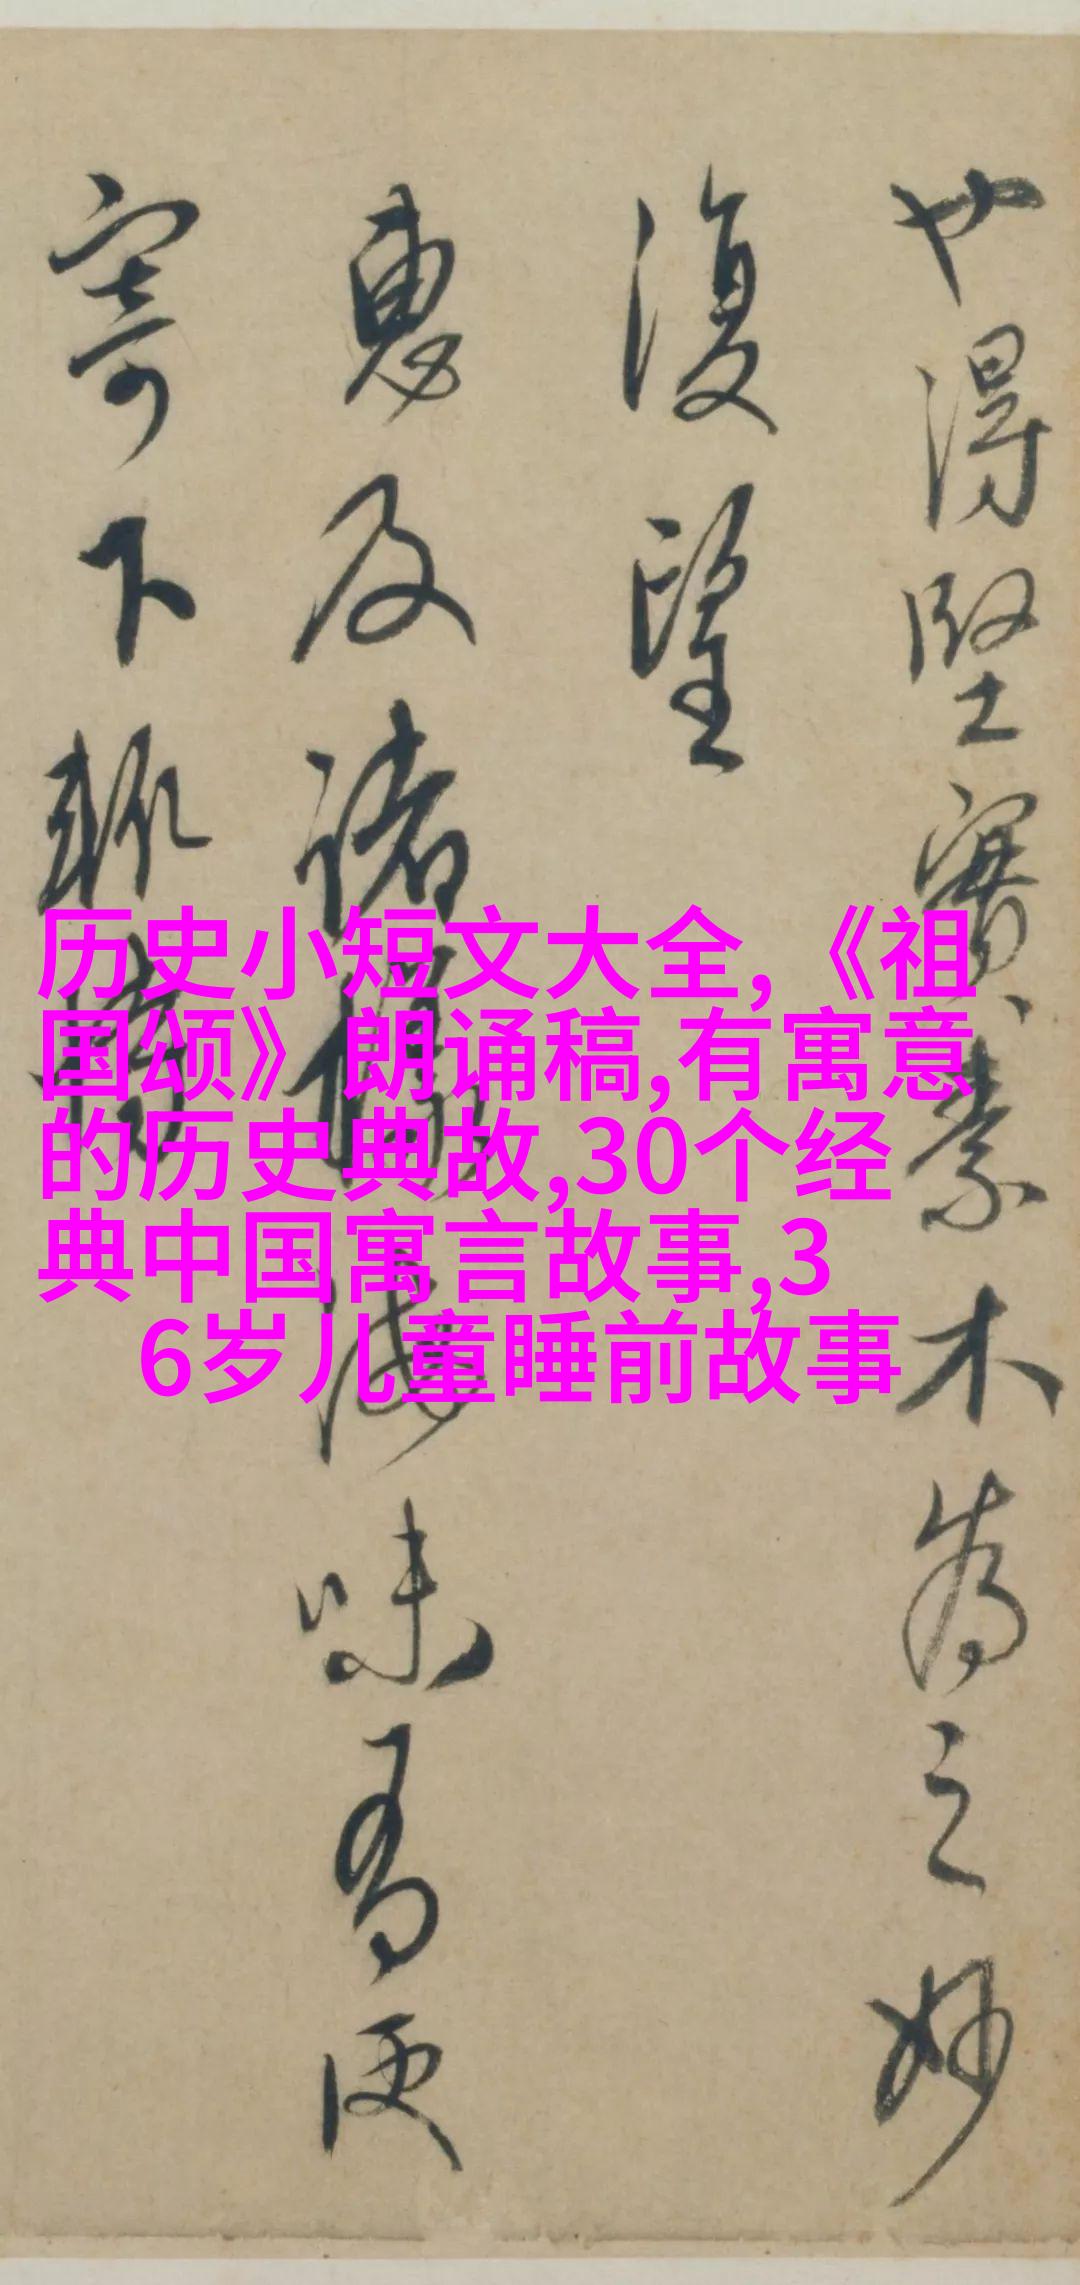 也得坚實素木為之妙
復望
惠及諸
海味有便
寄下
历史小短文大全,《祖
国颂》朗诵稿,有寓意
的历史典故,30个经
典中国寓言故事,3
6岁儿童睡前故事